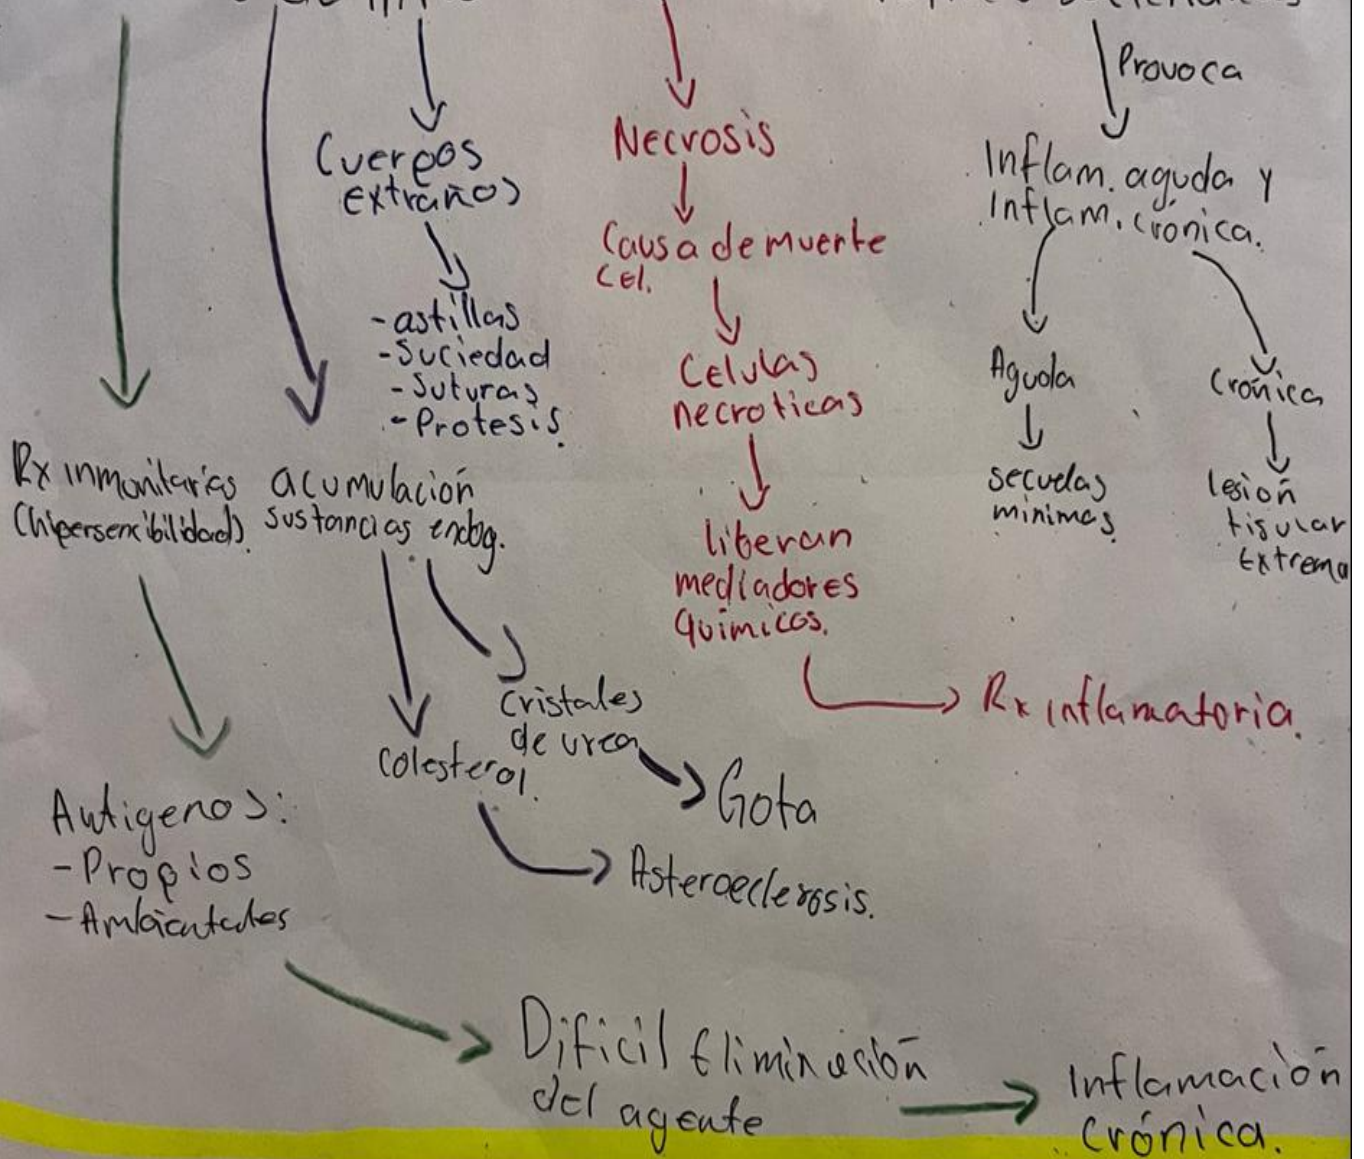 Provoca
Cuerpos
extraños
- astillas
- Suciedad
- Suturas
- Protesis.
Necrosis
Causa de muerte
Cel.
Celulas
necroticas
liberan
mediadores
químicos.
Rx inflamatoria.
Inflam. aguda y
Inflam. crónica.
Aguda
secuelas
minimas.
Crónica
lesión
tisular
Extrema
Rx inmonitarias
(hipersencibilidad).
acumulación
sustancias endog.
Cristales
de urea
Gota
Colesterol.
Asteroeclerosis.
Antigenos:
- Propios
- Ambientales
Dificil Eliminación
del agente
Inflamación
crónica.